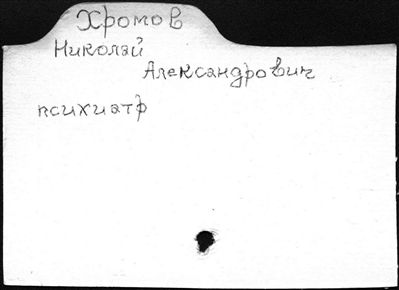 Хромов
Николай
Александрович
психиатр